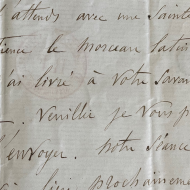 attends avec une Sainte
tience le morceau latin
j'ai livré à votre savan
veuillez je vous p
l'envoyer. notre Séance
lieu prochainemen